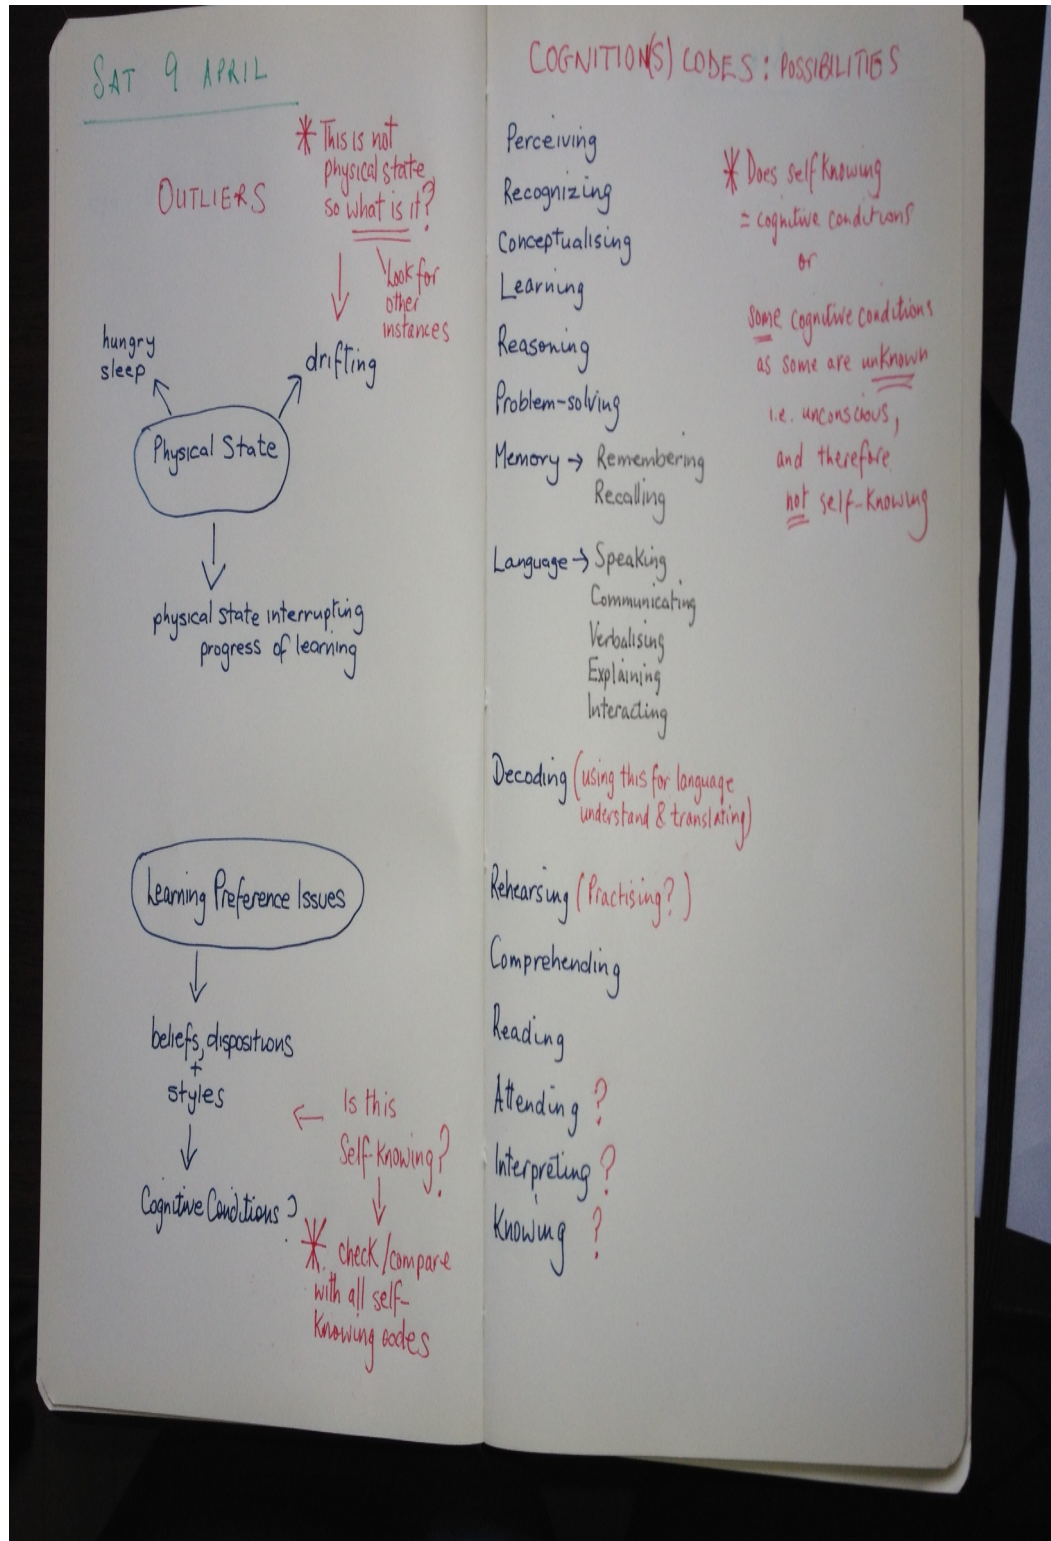 SAT 9 APRIL
OUTLIERS
* This is not
physical state,
so what is it?
Look for
other
instances
hungry
sleep
drifting
Physical State
physical state interrupting
progress of learning
Learning Preference Issues
beliefs, dispositions
+
styles
Cognitive Conditions ?
← Is this
Self-Knowing?
* check/compare
with all self-
Knowing codes
COGNITION(S) CODES : POSSIBILITIES
Perceiving
Recognizing
Conceptualising
Learning
Reasoning
Problem-solving
Memory → Remembering
Recalling
Language → Speaking
Communicating
Verbalising
Explaining
Interacting
Decoding (using this for language
understand & translating)
Rehearsing (Practising?)
Comprehending
Reading
Attending ?
Interpreting ?
Knowing ?
* Does self Knowing
= cognitive conditions
or
some cognitive conditions
as some are unknown
i.e. unconscious,
and therefore
not self-Knowing